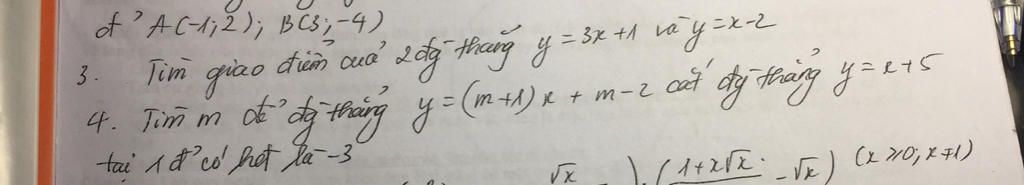 đ² A(-1;2); B(3;-4)
3. Tìm giao điểm của 2 đg thẳng y = 3x+1 và y = x-2
4. Tìm m để đg thẳng y = (m+1)x + m-2 cắt đg thẳng y = x+5
tại 1 đ² có hđt là -3
√x ) . ( 1+x√x - √x ) (x ≥0; x≠1)